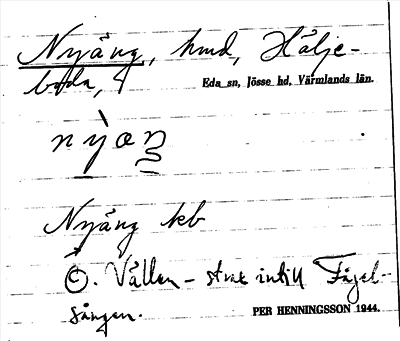 Nyäng, hmd, Hälje-
boda, 4
Eda sn, Jösse hd, Värmlands län.
Nyäng kb
©. Vållen – strax intill Fågel-
sången.
PER HENNINGSSON 1944.